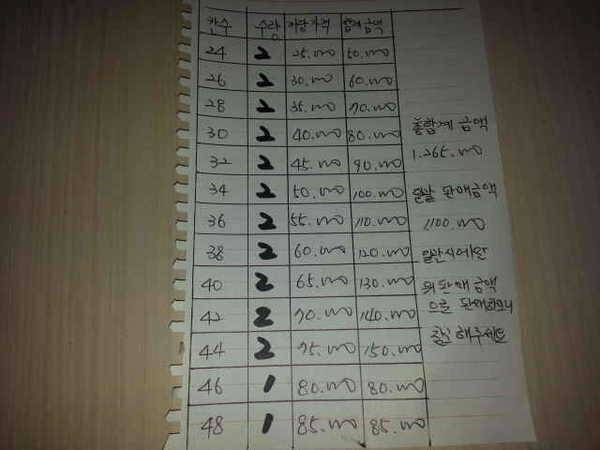 칸수 수량 자당가격 합계 금액
24 2 25.000 50.000
26 2 30.000 60.000
28 2 35.000 70.000
30 2 40.000 80.000
32 2 45.000 90.000
34 2 50.000 100.000
36 2 55.000 110.000
38 2 60.000 120.000
40 2 65.000 130.000
42 2 70.000 140.000
44 2 75.000 150.000
46 1 80.000 80.000
48 1 85.000 85.000
총합계 금액
1.265.000
판매금액
1100.000
위 판매금액
으로 판매하오니
참고해주세요